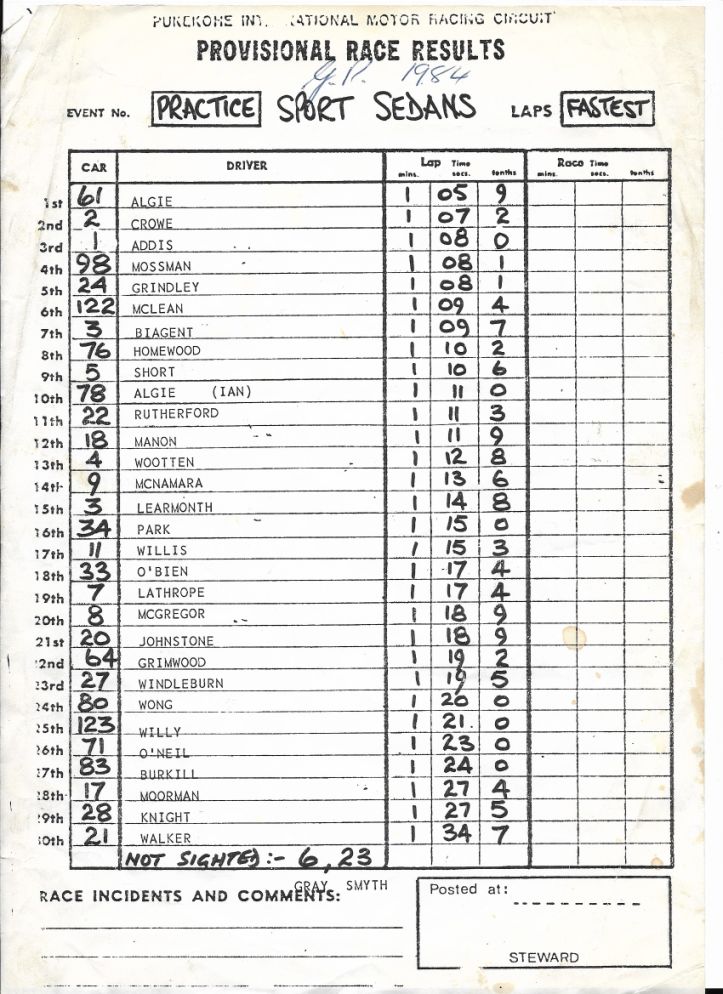 PUKEKOHE INT. NATIONAL MOTOR RACING CIRCUIT
PROVISIONAL RACE RESULTS
G.P. 1984
EVENT No. PRACTICE SPORT SEDANS LAPS FASTEST
CAR DRIVER Lap Time Race Time
mins. secs. tenths mins. secs. tenths
1st 61 ALGIE 1 05 9
2nd 2 CROWE 1 07 2
3rd 1 ADDIS 1 08 0
4th 98 MOSSMAN 1 08 1
5th 24 GRINDLEY 1 08 1
6th 122 MCLEAN 1 09 4
7th 3 BIAGENT 1 09 7
8th 76 HOMEWOOD 1 10 2
9th 5 SHORT 1 10 6
10th 78 ALGIE (IAN) 1 11 0
11th 22 RUTHERFORD 1 11 3
12th 18 MANON 1 11 9
13th 4 WOOTTEN 1 12 8
14th 9 MCNAMARA 1 13 6
15th 3 LEARMONTH 1 14 8
16th 34 PARK 1 15 0
17th 11 WILLIS 1 15 3
18th 33 O'BIEN 1 17 4
19th 7 LATHROPE 1 17 4
20th 8 MCGREGOR 1 18 9
21st 20 JOHNSTONE 1 18 9
2nd 64 GRIMWOOD 1 19 2
23rd 27 WINDLEBURN 1 19 5
24th 80 WONG 1 20 0
25th 123 WILLY 1 21 0
26th 71 O'NEIL 1 23 0
27th 83 BURKILL 1 24 0
28th 17 MOORMAN 1 27 4
29th 28 KNIGHT 1 27 5
30th 21 WALKER 1 34 7
NOT SIGHTED :- 6, 23
GRAY SMYTH
RACE INCIDENTS AND COMMENTS:
Posted at:
STEWARD